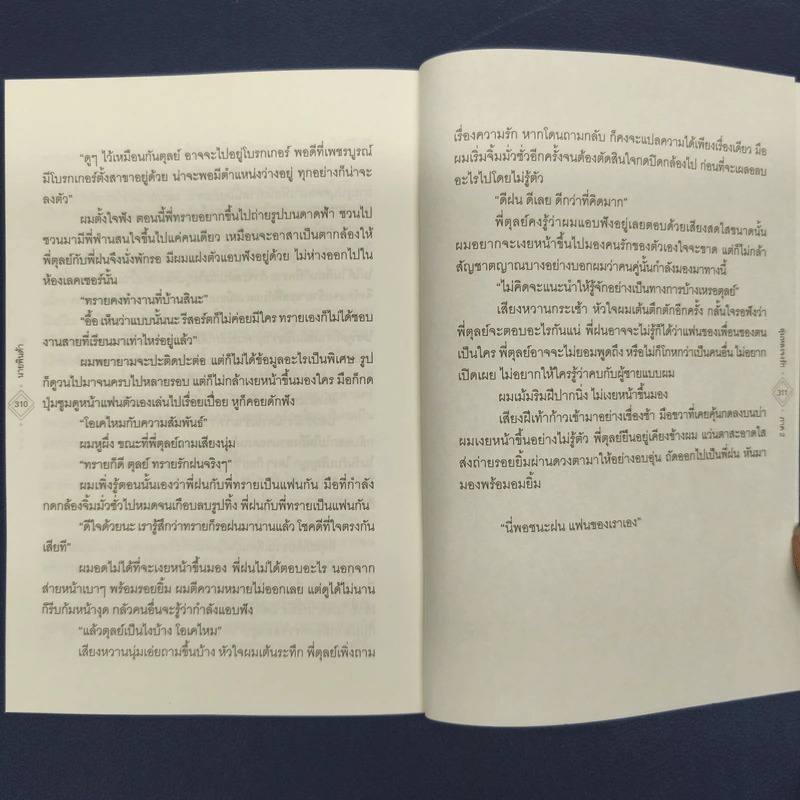 “ดูๆ ไว้เหมือนกันตุลย์ อาจจะไปอยู่โบรกเกอร์ พอดีที่เพชรบูรณ์
มีโบรกเกอร์ตั้งสาขาอยู่ด้วย น่าจะพอมีตำแหน่งว่างอยู่ ทุกอย่างก็น่าจะ
ลงตัว”
ผมตั้งใจฟัง ตอนนี้พี่ทรายอยากขึ้นไปถ่ายรูปบนดาดฟ้า ชวนไป
ชวนมามีพี่ฟ่านสนใจขึ้นไปแค่คนเดียว เหมือนจะอาสาเป็นตากล้องให้
พี่ตุลย์กับพี่ฝนจึงนั่งพักรอ มีผมแฝงตัวแอบฟังอยู่ด้วย ไม่ห่างออกไปใน
ห้องเลคเชอร์นั้น
“ทรายคงทำงานที่บ้านสินะ”
“อื้อ เห็นว่าแบบนั้นนะ รีสอร์ตก็ไม่ค่อยมีใคร ทรายเองก็ไม่ได้ชอบ
งานสายที่เรียนมาเท่าไหร่อยู่แล้ว”
ผมพยายามจะปะติดปะต่อ แต่ก็ไม่ได้ข้อมูลอะไรเป็นพิเศษ รูป
ก็ดูวนไปมาจนครบไปหลายรอบ แต่ก็ไม่กล้าเงยหน้าขึ้นมองใคร มือก็กด
ปุ่มซูมดูหน้าแฟนตัวเองเล่นไปเรื่อยเปื่อย หูก็คอยดักฟัง
“โอเคไหมกับความสัมพันธ์”
ผมหูผึ่ง ขณะที่พี่ตุลย์ถามเสียงนุ่ม
“ทรายก็ดี ตุลย์ ทรายรักฝนจริงๆ”
ผมเพิ่งรู้ตอนนั้นเองว่าพี่ฝนกับพี่ทรายเป็นแฟนกัน มือที่กำลัง
กดกล้องจิ้มมั่วซั่วไปหมดจนเกือบลบรูปทิ้ง พี่ฝนกับพี่ทรายเป็นแฟนกัน
“ดีใจด้วยนะ เรารู้สึกว่าทรายก็รอฝนมานานแล้ว โชคดีที่ใจตรงกัน
เสียที”
ผมอดไม่ได้ที่จะเงยหน้าขึ้นมอง พี่ฝนไม่ได้ตอบอะไร นอกจาก
ส่ายหน้าเบาๆ พร้อมรอยยิ้ม ผมตีความหมายไม่ออกเลย แต่ดูได้ไม่นาน
ก็รีบก้มหน้างุด กลัวคนอื่นจะรู้ว่ากำลังแอบฟัง
“แล้วตุลย์เป็นไงบ้าง โอเคไหม”
เสียงหวานนุ่มเอ่ยถามขึ้นบ้าง หัวใจผมเต้นระทึก พี่ตุลย์เพิ่งถาม
นายพินต้า
310
เรื่องความรัก หากโดนถามกลับ ก็คงจะแปลความได้เพียงเรื่องเดียว มือ
ผมเริ่มจิ้มมั่วซั่วอีกครั้งจนต้องตัดสินใจกดปิดกล้องไป ก่อนที่จะเผลอลบ
อะไรไปโดยไม่รู้ตัว
“ดีฝน ดีเลย ดีกว่าที่คิดมาก”
พี่ตุลย์คงรู้ว่าผมแอบฟังอยู่เลยตอบด้วยเสียงสดใสขนาดนั้น
ผมอยากจะเงยหน้าขึ้นไปมองคนรักของตัวเองใจจะขาด แต่ก็ไม่กล้า
สัญชาตญาณบางอย่างบอกผมว่าคนคู่นั้นกำลังมองมาทางนี้
“ไม่คิดจะแนะนำให้รู้จักอย่างเป็นทางการบ้างเหรอตุลย์”
เสียงหวานกระเซ้า หัวใจผมเต้นตึกตักอีกครั้ง กลั้นใจรอฟังว่า
พี่ตุลย์จะตอบอะไรกันแน่ พี่ฝนอาจจะไม่รู้ก็ได้ว่าแฟนของเพื่อนของตน
เป็นใคร พี่ตุลย์อาจจะไม่ยอมพูดถึง หรือไม่ก็โกหกว่าเป็นคนอื่น ไม่อยาก
เปิดเผย ไม่อยากให้ใครรู้ว่าคบกับผู้ชายแบบผม
ผมเม้มริมฝีปากนิ่ง ไม่เงยหน้าขึ้นมอง
เสียงฝีเท้าก้าวเข้ามาอย่างเชื่องช้า มือขวาที่เคยคุ้นกดลงบนบ่า
ผมเงยหน้าขึ้นอย่างไม่รู้ตัว พี่ตุลย์ยืนอยู่เคียงข้างผม แว่นตาสะอาดใส
ส่งถ่ายรอยยิ้มผ่านดวงตามาให้อย่างอบอุ่น ถัดออกไปเป็นพี่ฝน หันมา
มองพร้อมอมยิ้ม
“นี่พอชนะฝน แฟนของเราเอง”
311
ภาค 2